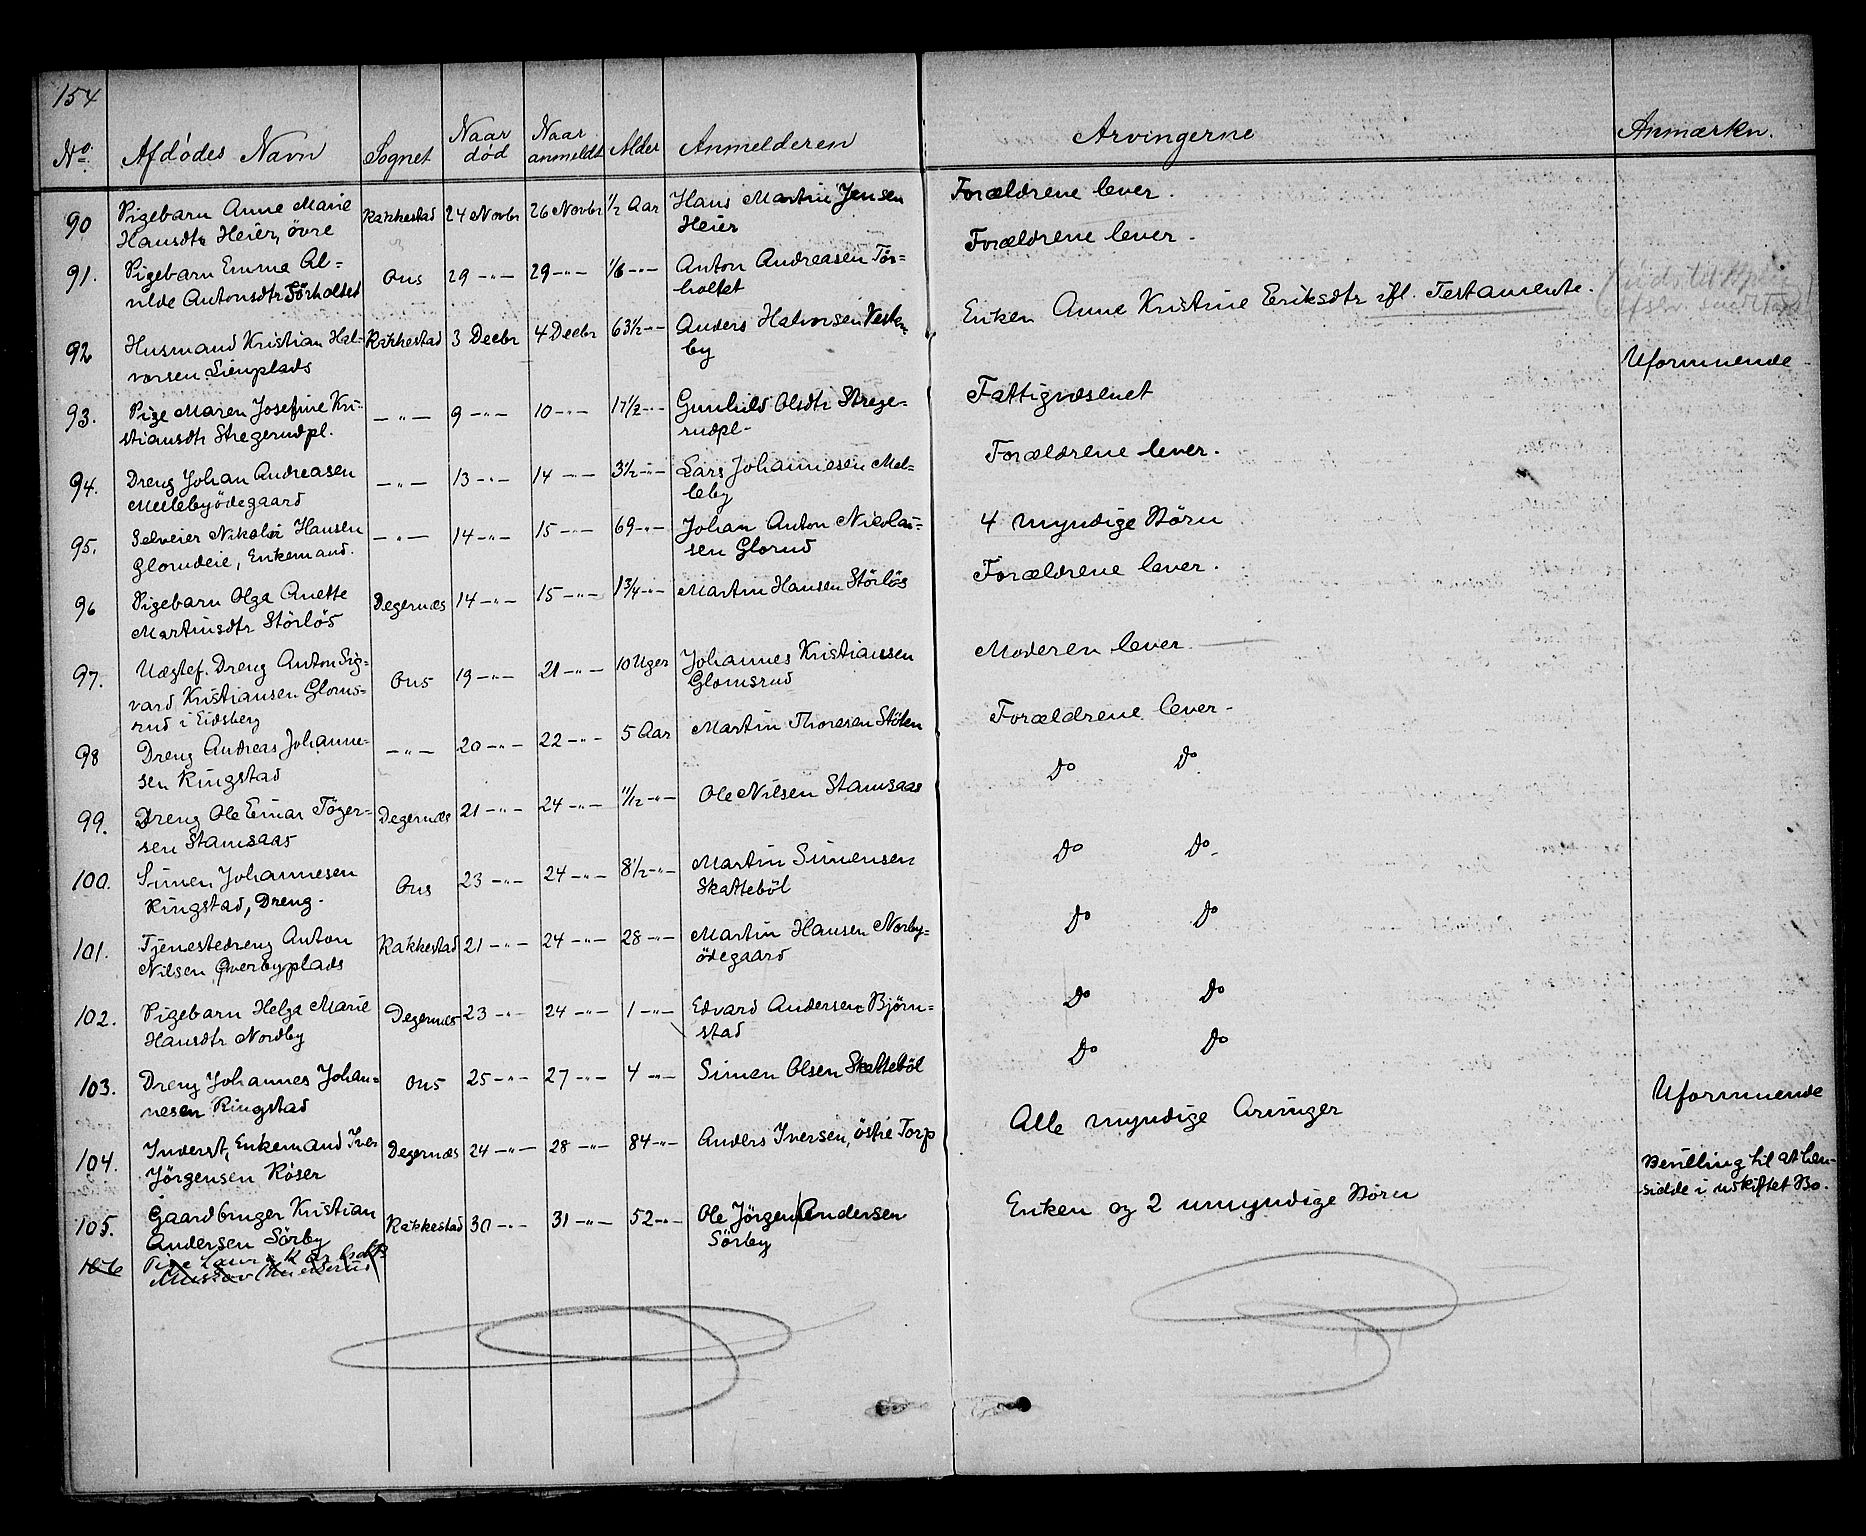 154
No. Afdödes Navn Sognet Naar död Naar anmeldt Alder Anmelderen Arvingerne Anmærkn.
90 Pigebarn Anne Marie Rakkestad 24 Novbr 26 Novbr 1/2 Aar Hans Martin Jensen Forældrene lever.
Hansdtr Heier, övre Heier
91. Pigebarn Emma Al= Ous 29 -"- 29 -"- 1/6 -"- Anton Andreasen Tör= Forældrene lever.
vilde Antonsdtr Törholtet holtet
92 Husmand Kristian Hal- Rakkestad 3 Decbr 4 Decbr 63 1/2 -"- Anders Halvorsen Enken Anne Kristine Eriksdtr ifl. Testamente.
vorsen Lienplads by
93. Pige Maren Josefine Kri- -"- 9 -"- 10 -"- 17 1/2 -"- Gunhild Olsdtr Strege- Fattigvæsenet Uformuende
stiansdtr Stregerudpl. rudpl-
94. Dreng Johan Andreasen -"- 13 -"- 14 -"- 3 1/2 -"- Lars Johannesen Mel= Forældrene lever.
Mellebyödegaard leby
95. Selveier Nikolai Hansen -"- 14 -"- 15 -"- 69 -"- Johan Anton Nicolai= 4 myndige Börn
Glorudeie, Enkemand. sen Glorud
96 Pigebarn Olga Anette Degernæs 14 -"- 15 -"- 1 3/4 -"- Martin Hansen Störlös Forældrene lever.
Martinsdtr Störlös
97. Uægtef. Dreng Anton Sig= Ous 19 -"- 21 -"- 10 Uger Johannes Kristiansen Moderen lever.
vard Kristiansen Gloms= Glomsrud
rud i Eidsberg
98 Dreng Andreas Johanne= -"- 20 -"- 22 -"- 5 Aar Martin Thoresen Stölen Forældrene lever.
sen Ringstad
99. Dreng Ole Einar Töger= Degernæs 21 -"- 24 -"- 11/12 -"- Ole Nilsen Stamsaas Do Do
sen Stamsaas
100. Simen Johannesen Ous 23 -"- 24 -"- 8 1/2 -"- Martin Simensen Do Do
Ringstad, Dreng- Skatteböl
101. Tjenestedreng Anton Rakkestad 21 -"- 24 -"- 28 -"- Martin Hansen Norby= Do Do
Nilsen Överbyplads ödegaard
102. Pigebarn Helga Marie Degernæs 23 -"- 24 -"- 1 -"- Edvard Andersen Björn= Do Do
Hansdtr Nordby stad
103. Dreng Johannes Johan= Ous 25 -"- 27 -"- 4 -"- Simen Olsen Skatteböl Do Do
nesen Ringstad
104. Inderst, Enkemand Iver Degernæs 24 -"- 28 -"- 84 -"- Anders Iversen, östre Torp Alle myndige Arvinger Uformuende
Jörgensen Röser
105. Gaardbruger Kristian Rakkestad 30 -"- 31 -"- 52 -"- Ole Jörgen Andersen Enken og 2 umyndige Börn Bevilling til at hen-
Andersen Sörby Sörby sidde i uskiftet Bo.
106 Pige